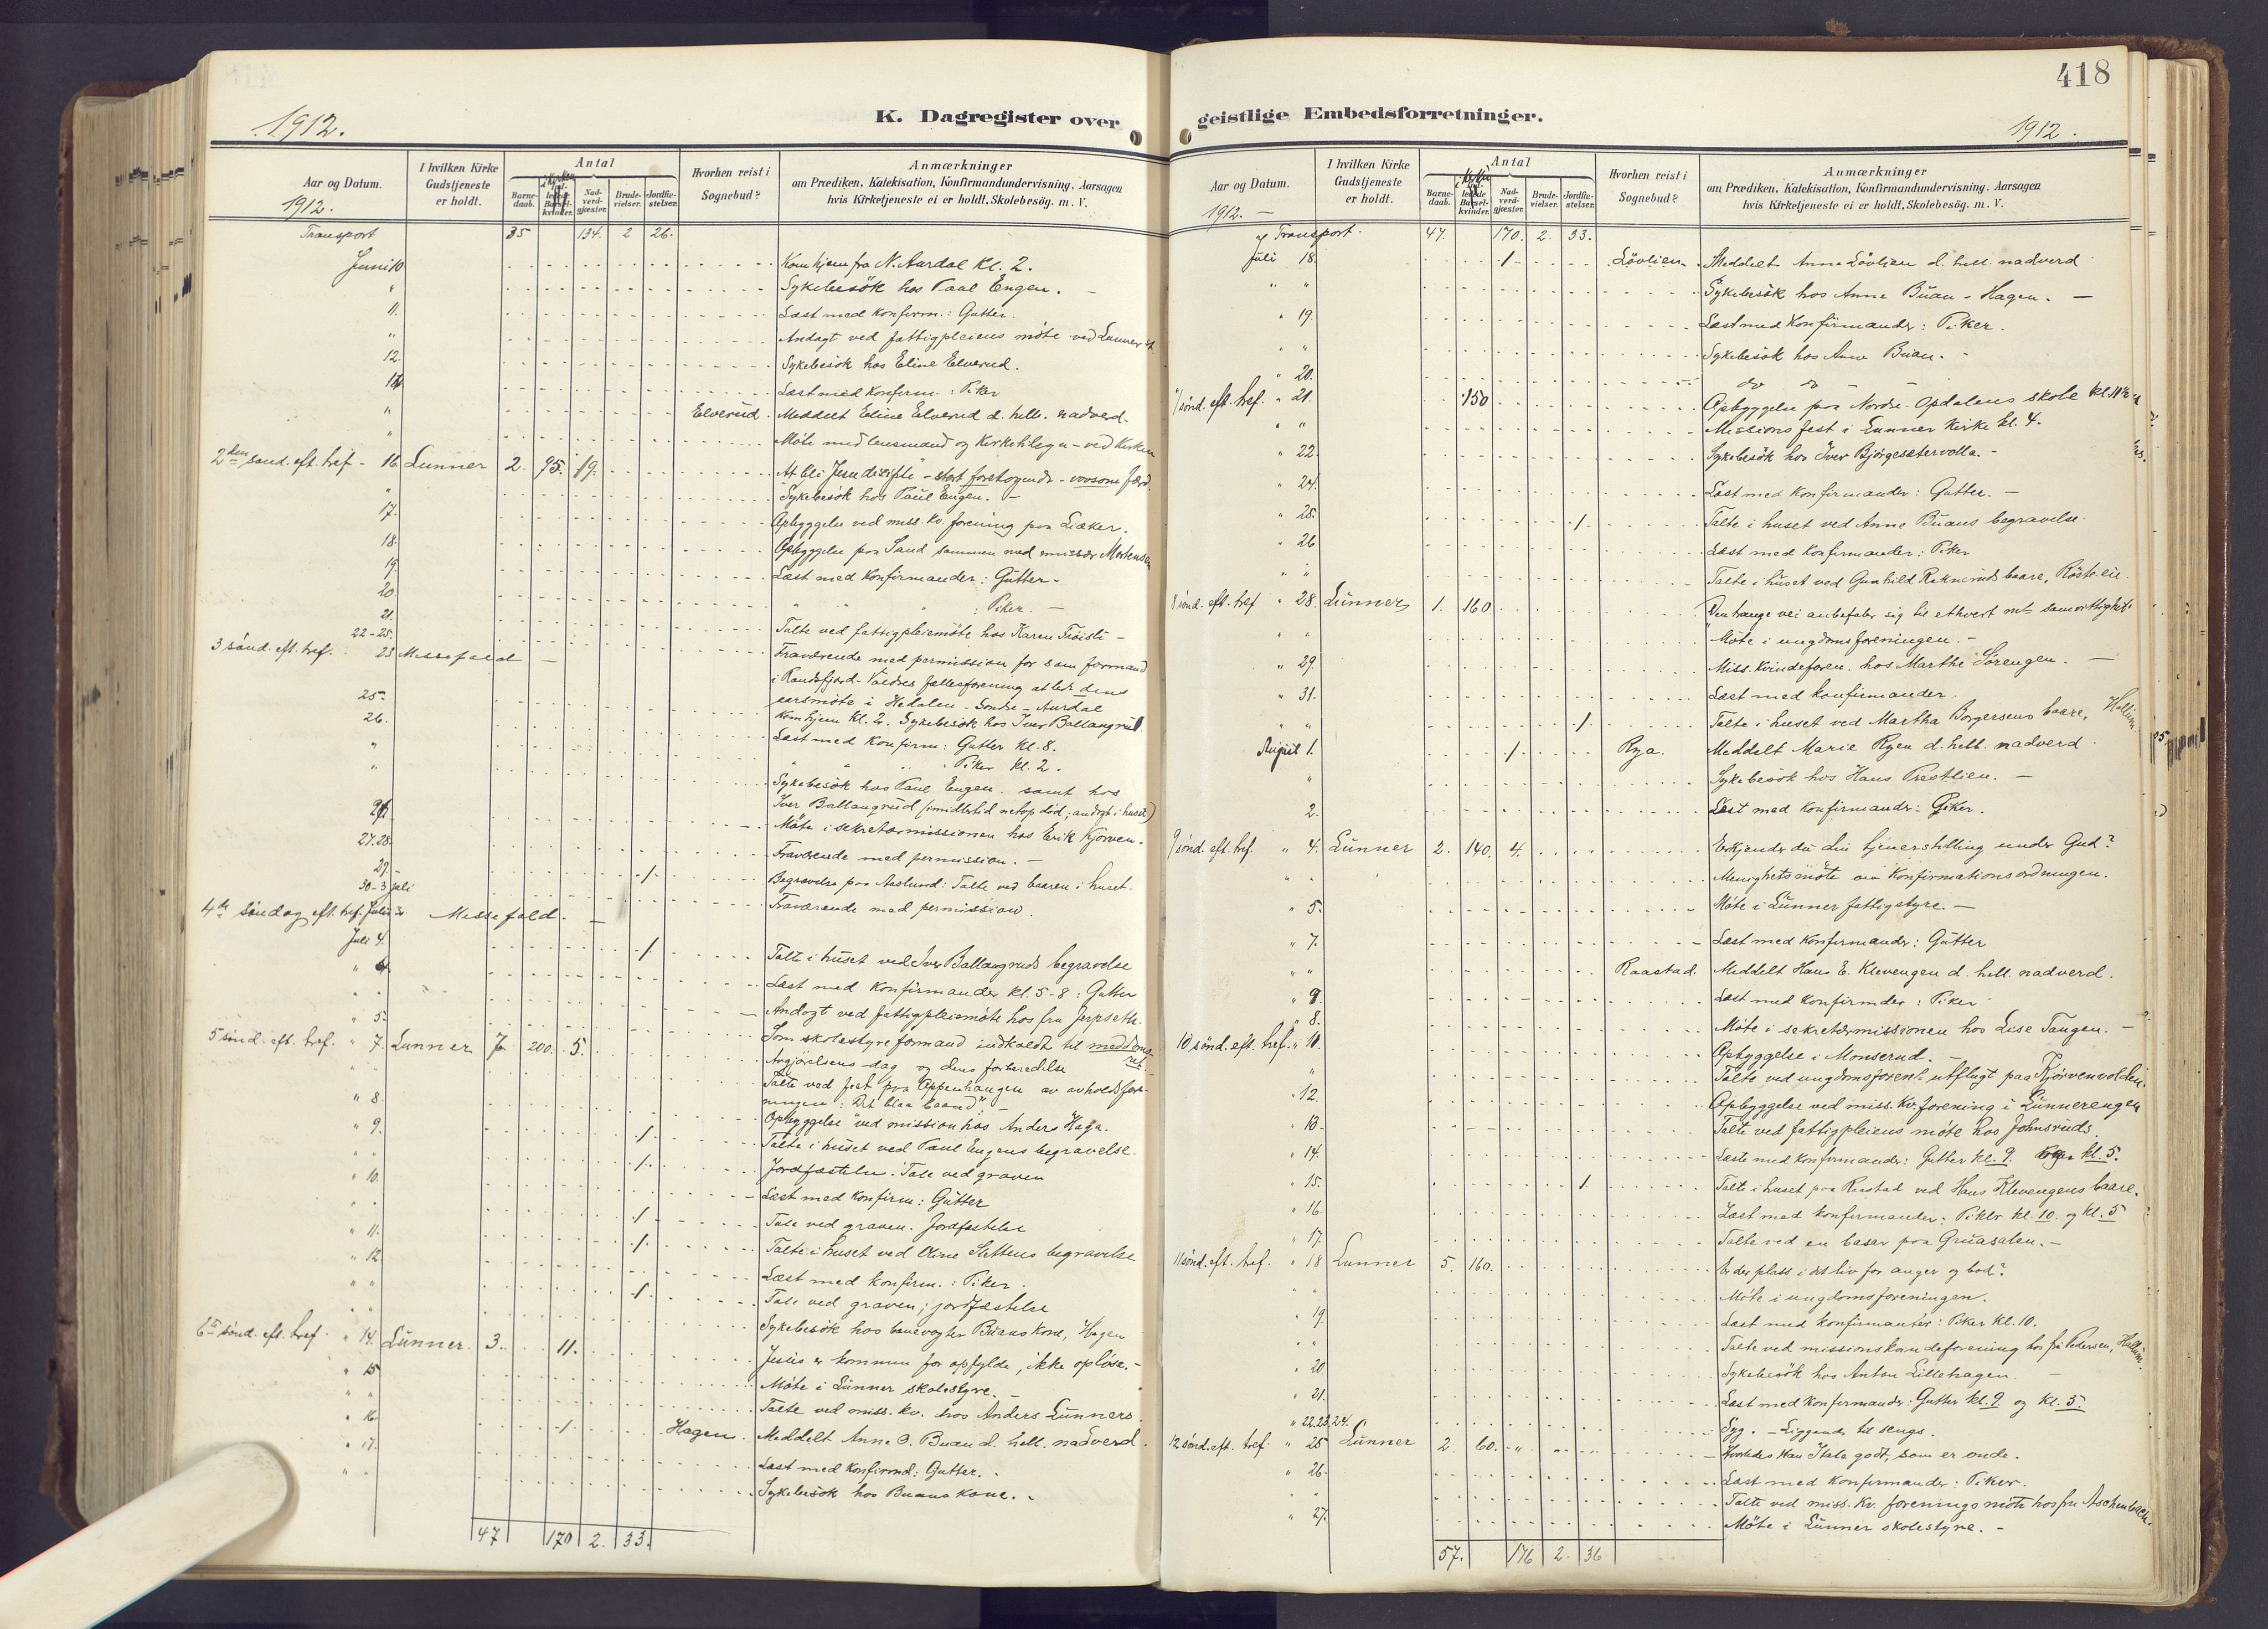 1912.
K. Dagregister over
Aar og Datum.
1912.
I hvilken Kirke Gudstjeneste er holdt.
Antal
Barne-daab.
Nad-verd-gjæster.
Brude-vielser.
Jordfæ-stelser.
Hvorhen reist i Sognebud?
Anmærkninger
om Prædiken, Katekisation, Konfirmandundervisning, Aarsagen
hvis Kirketjeneste ei er holdt, Skolebesög. m. V.
Transport 35 134. 2 26.
Juni 10 Kom hjem fra N. Aurdal kl. 2.
" Sykebesök hos Paul Engen. -
11. Læst med konfirm.: Gutter.
" Andagt ved fattigpleiens möte ved Lunner st.
12. Sykebesök hos Eline Elverud.
14 Læst med konfirm.: Piker
" Elverud. Meddelt Eline Elverud d. hell. nadverd.
" Möte med lensmand og Kirketilsyn - ved Kirken
2den sönd. eft. tref - 16. Lunner 2. 95. 19. At bli Jesu discipel - stort foretagende - vovsom færd.
" Sykebesök hos Paul Engen. -
17. Opbyggelse ved miss. kv. forening paa Liaker.
18. Opbyggelse paa Sand sammen med emissær Mortensen
19. Læst med Konfirmander: Gutter -
20. " " " : Piker. -
21. Talte ved fattigpleiemöte hos Karen Fröisli -
22-25. Fraværende med permission for som formand
3 sönd. eft. tref. 23 Messefald - i Randsfjord-Valdres fællesforening at lede dens
aarsmöte i Hedalen - Sondre-Aurdal
25. Kom hjem kl. 2. Sykebesök hos Iver Ballangrud
26. Læst med Konfirm: Gutter kl. 8.
" " " " Piker kl. 2.
" Sykebesök hos Paul Engen. samt hos
Iver Ballangrud (imidlertid netop död; andagt i huset)
Möte i sekretærmissionen hos Erik Kjörven.
27.28. Fraværende med permission. -
29. 1. Begravelse paa Aaslund: Talte ved baaren i huset.
30-3 juli Fraværende med permission.
4de söndag eft. tref. Messefald. -
Juli 4. 1 Talte i huset ved Iver Ballangruds begravelse
Læst med Konfirmander kl. 5-8: Gutter
" " Andagt ved fattigpleiemöte hos fru Jerpseth.
" 5. Som skolestyreformand indkaldt til meddoms-
ret
5 sönd. eft. tref. " 7. Lunner 7 200. 5. Avgjörelsens dag og dens forberedelse
" " Talte ved fest paa Oppenhaugen av avholdsfore-
ningen: "Det blaa baand". -
" 8. Opbyggelse ved mission hos Anders Haga.
" 9. 1. Talte i huset ved Paul Engens begravelse.
" " 1. Jordfæstelse. Tale ved graven
" 10. Læst med Konfirm: Gutter
" " 1 Tale ved graven. Jordfæstelse
" 11. 1. Talte i huset ved Oline Slettens begravelse
" 12. Læst med konfirm.: Piker.
" " 1. Tale ved graven; jordfæstelse
" " Sykebesök hos banevogter Buans kone, Hagen
6te sönd. eft. tref. " 14. Lunner. 3. 11. Jesus er kommen for opfylde, ikke oplöse. -
" 15 Möte i Lunner skolestyre. -
" " Talte ved miss. kv. hos Anders Lunners
" 16. 1 Hagen. Meddelt Anne O. Buan d. hell. nadverd.
" 17. Læst med Konfirmd: Gutter. -
" " Sykebesök hos Buans kone. -
47 170 2. 33.
418
geistlige Embedsforretninger.
1912.
Aar og Datum.
1912. -
I hvilken Kirke Gudstjeneste er holdt.
Antal
Barne-daab.
Nad-verd-gjæster.
Brude-vielser.
Jordfæ-stelser.
Hvorhen reist i Sognebud?
Anmærkninger
om Prædiken, Katekisation, Konfirmandundervisning, Aarsagen
hvis Kirketjeneste ei er holdt, Skolebesög. m. V.
Transport. 47. 170. 2. 33.
Juli 18. 1. Lövlien. Meddelt Anne Lövlien d. hell. nadverd
" " Sykebesök hos Anne Buan - Hagen. -
" 19. Læst med Konfirmander: Piker.
" " Sykebesök hos Anne Buan. -
" 20. do do -
7 sönd. eft. tref. " 21. 150 Opbyggelse paa Nordre Opdalens skole kl. 11
" " Missionsfest i Lunner kirke kl. 4.
" 22. Sykebesök hos Iver Björgesætervolla. -
" 24. Læst med Konfirmander: Gutter. -
" 25. 1. Talte i huset ved Anne Buans begravelse
" 26 Læst med Konfirmander: Piker
" " Talte i huset ved Gunhild Rekneruds baare,
8 sönd. eft. tref " 28. Lunner 1. 160. Den trange vei anbefaler sig til ethvert samvittighet.
" " Möte i ungdomsforeningen. -
" 29. Miss. kvindeforen. hos Marthe Sörengen. -
" 31. Læst med konfirmander.
" " 1. Talte i huset ved Martha Borgersens baare, Hallum
August 1. 1. Rya. Meddelt Marie Ryen d. hell. nadverd
" Sykebesök hos Hans Prestlien. -
2. Læst med konfirmander: Piker.
9 sönd. eft. tref. " 4. Lunner 2. 140. 4. Erkjender du din tjenerstilling under Gud?
" " Menighetsmöte om Konfirmationsordningen.
" 5. Möte i Lunner fattigstyre. -
" 7. Læst med Konfirmander: Gutter
" " Raastad. Meddelt Hans E. Klevengen d. hell. nadverd.
" 8. Læst med konfirmder: Piker
" 8. Möte i sekretærmissionen hos Lise Tangen. -
10 sönd. eft. tref. " 11. Opbyggelse i Monserud. -
" Talte ved ungdomsforen. utflugt paa Kjörvenvolden.
" 12. Opbyggelse ved miss. kv. forening i Lunnerengen
" 13. Talte ved fattigpleiens möte hos Johnsruds
" 14. Læste med konfirmander: Gutter kl. 9. kl. 5.
" 15. 1. Talte i huset paa Raastad ved Hans Klevengens baare.
" 16. Læst med konfirmander: Piker kl. 10. og kl. 5
" 17. Talte ved en basar paa Gruasalen. -
11 sönd. eft. tref. " 18 Lunner 5. 160. Er der plass i dit liv for anger og bod?
" " Möte i ungdomsforeningen.
" 19. Læst med konfirmanter: Piker kl. 10.
" " Talte ved missionskvindeforening hos fru Pedersen, Hallum.
" 20 Sykebesök hos Anton Lillehagen. -
" 21. Læst med Konfirmander: Gutter kl. 9 og kl. 5.
" 22.23.24. Syg. - Liggende til sengs.
12 sönd. eft. tref " 25 Lunner 2. 60. - " Hvorledes kan I tale godt, som er onde.
" 26. Læst med konfirmander: Piker.
" " Talte ved miss. kv. foreningsmöte hos fru Aschenbach.
" 27. Möte i Lunner skolestyre. -
57. 176 2. 36